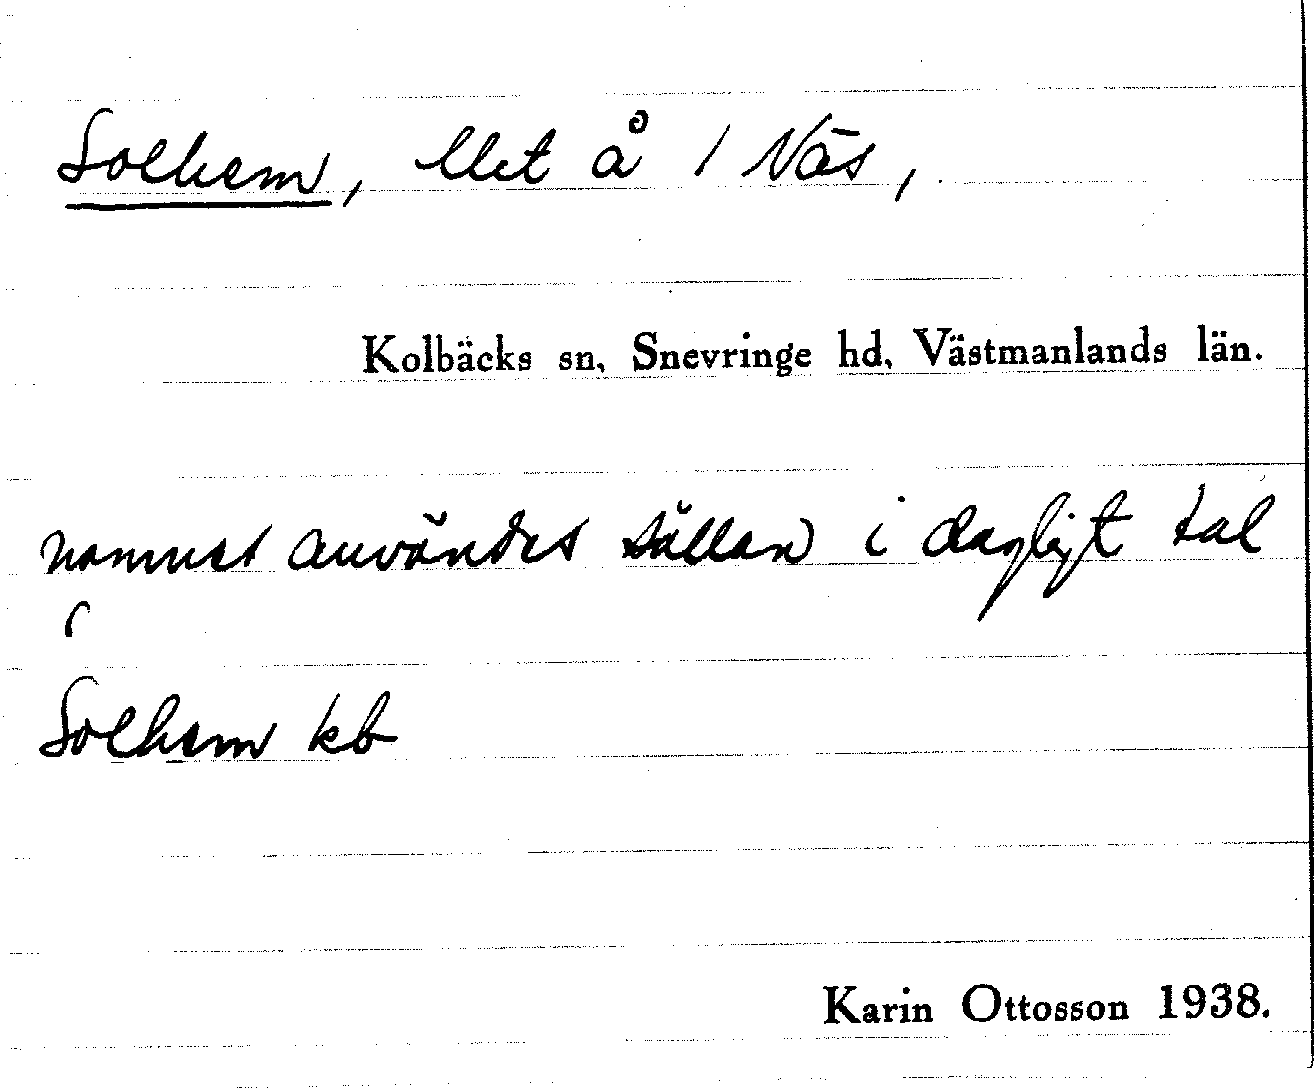 Solhem, llet å 1 Näs,
Kolbäcks sn, Snevringe hd, Västmanlands län.
namnet användes sällan i dagligt tal
Solhem kb
Karin Ottosson 1938.